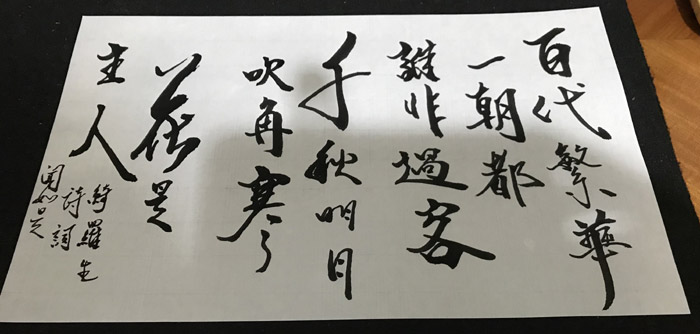 百代繁華
一朝都
誰非過客
千秋明月
吹角寒
花是
主人
綺羅生
詩詞
聞如是